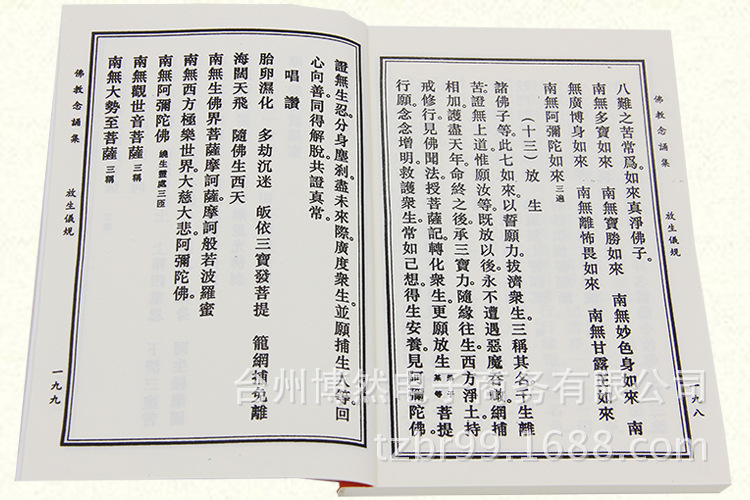 佛教念誦集
放生儀規
一九八
八難之苦常爲如來真淨佛子。
南無多寶如來　南無寶勝如來　南無妙色身如來　南
無廣博身如來　南無離怖畏如來　南無甘露王如來
南無阿彌陀如來三遍
(十三)放生
諸佛子等此七如來以誓願力拔濟衆生三稱其名千生離
苦證無上道惟願汝等既放以後永不遭遇惡魔吞噉網捕
相加護盡天年命終之後承三寶力隨緣往生西方淨土持
戒修行見佛聞法授菩薩記轉化衆生更願放生菩提
行願念念增明救護衆生常如己想得生安養見阿彌陀佛
證無生忍分身塵剎盡未來際廣度衆生並願捕生人等回
心向善同得解脫共證真常。
唱讚
胎卵濕化　多劫沉迷　皈依三寶發菩提　籠網捕免離
海闊天飛　隨佛生西天
南無生佛界菩薩摩訶薩摩訶般若波羅蜜
南無西方極樂世界大慈大悲阿彌陀佛。
南無阿彌陀佛繞生靈處三匝
南無觀世音菩薩三稱
南無大勢至菩薩三稱
佛教念誦集
放生儀規
一九九
台州博然电子商务有限公司
tzbr99.1688.com